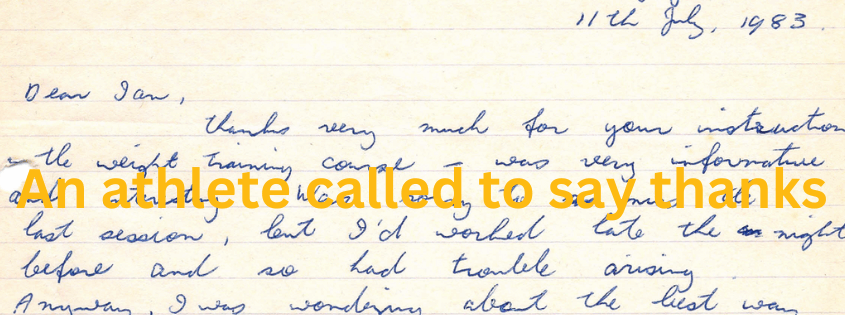 11th July, 1983.
Dear Ian,
Thanks very much for your instruction
in the weight training course – was very informative
and interesting. Was sorry to miss the
An athlete called to say thanks
last session, but I'd worked late the night
before and so had trouble arising.
Anyway, I was wondering about the best way